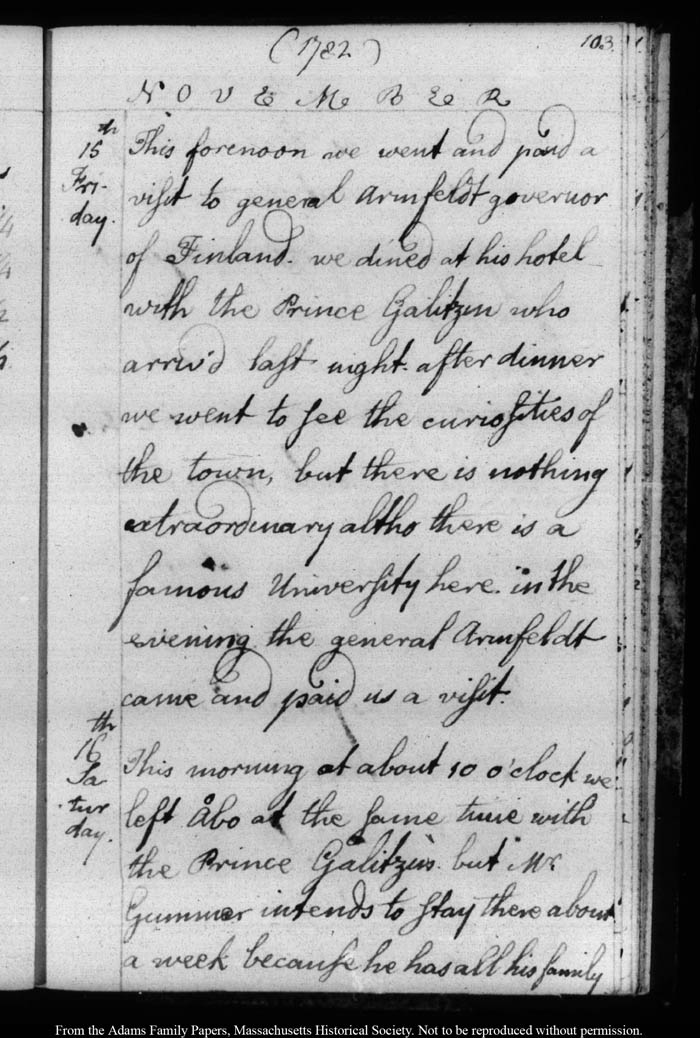 (1782)
103
NOVEMBER
15th
Fri-
day.
This forenoon we went and paid a
visit to general Armfeldt governor
of Finland. we dined at his hotel
with the Prince Galitzin who
arriv'd last night. after dinner
we went to see the curiosities of
the town, but there is nothing
extraordinary altho there is a
famous University here. in the
evening the general Armfeldt
came and paid us a visit.
16th
Sa
tur
day.
This morning at about 10 o'clock we
left Åbo at the same time with
the Prince Galitzin. but Mr.
Gummer intends to stay there about
a week because he has all his family
From the Adams Family Papers, Massachusetts Historical Society. Not to be reproduced without permission.